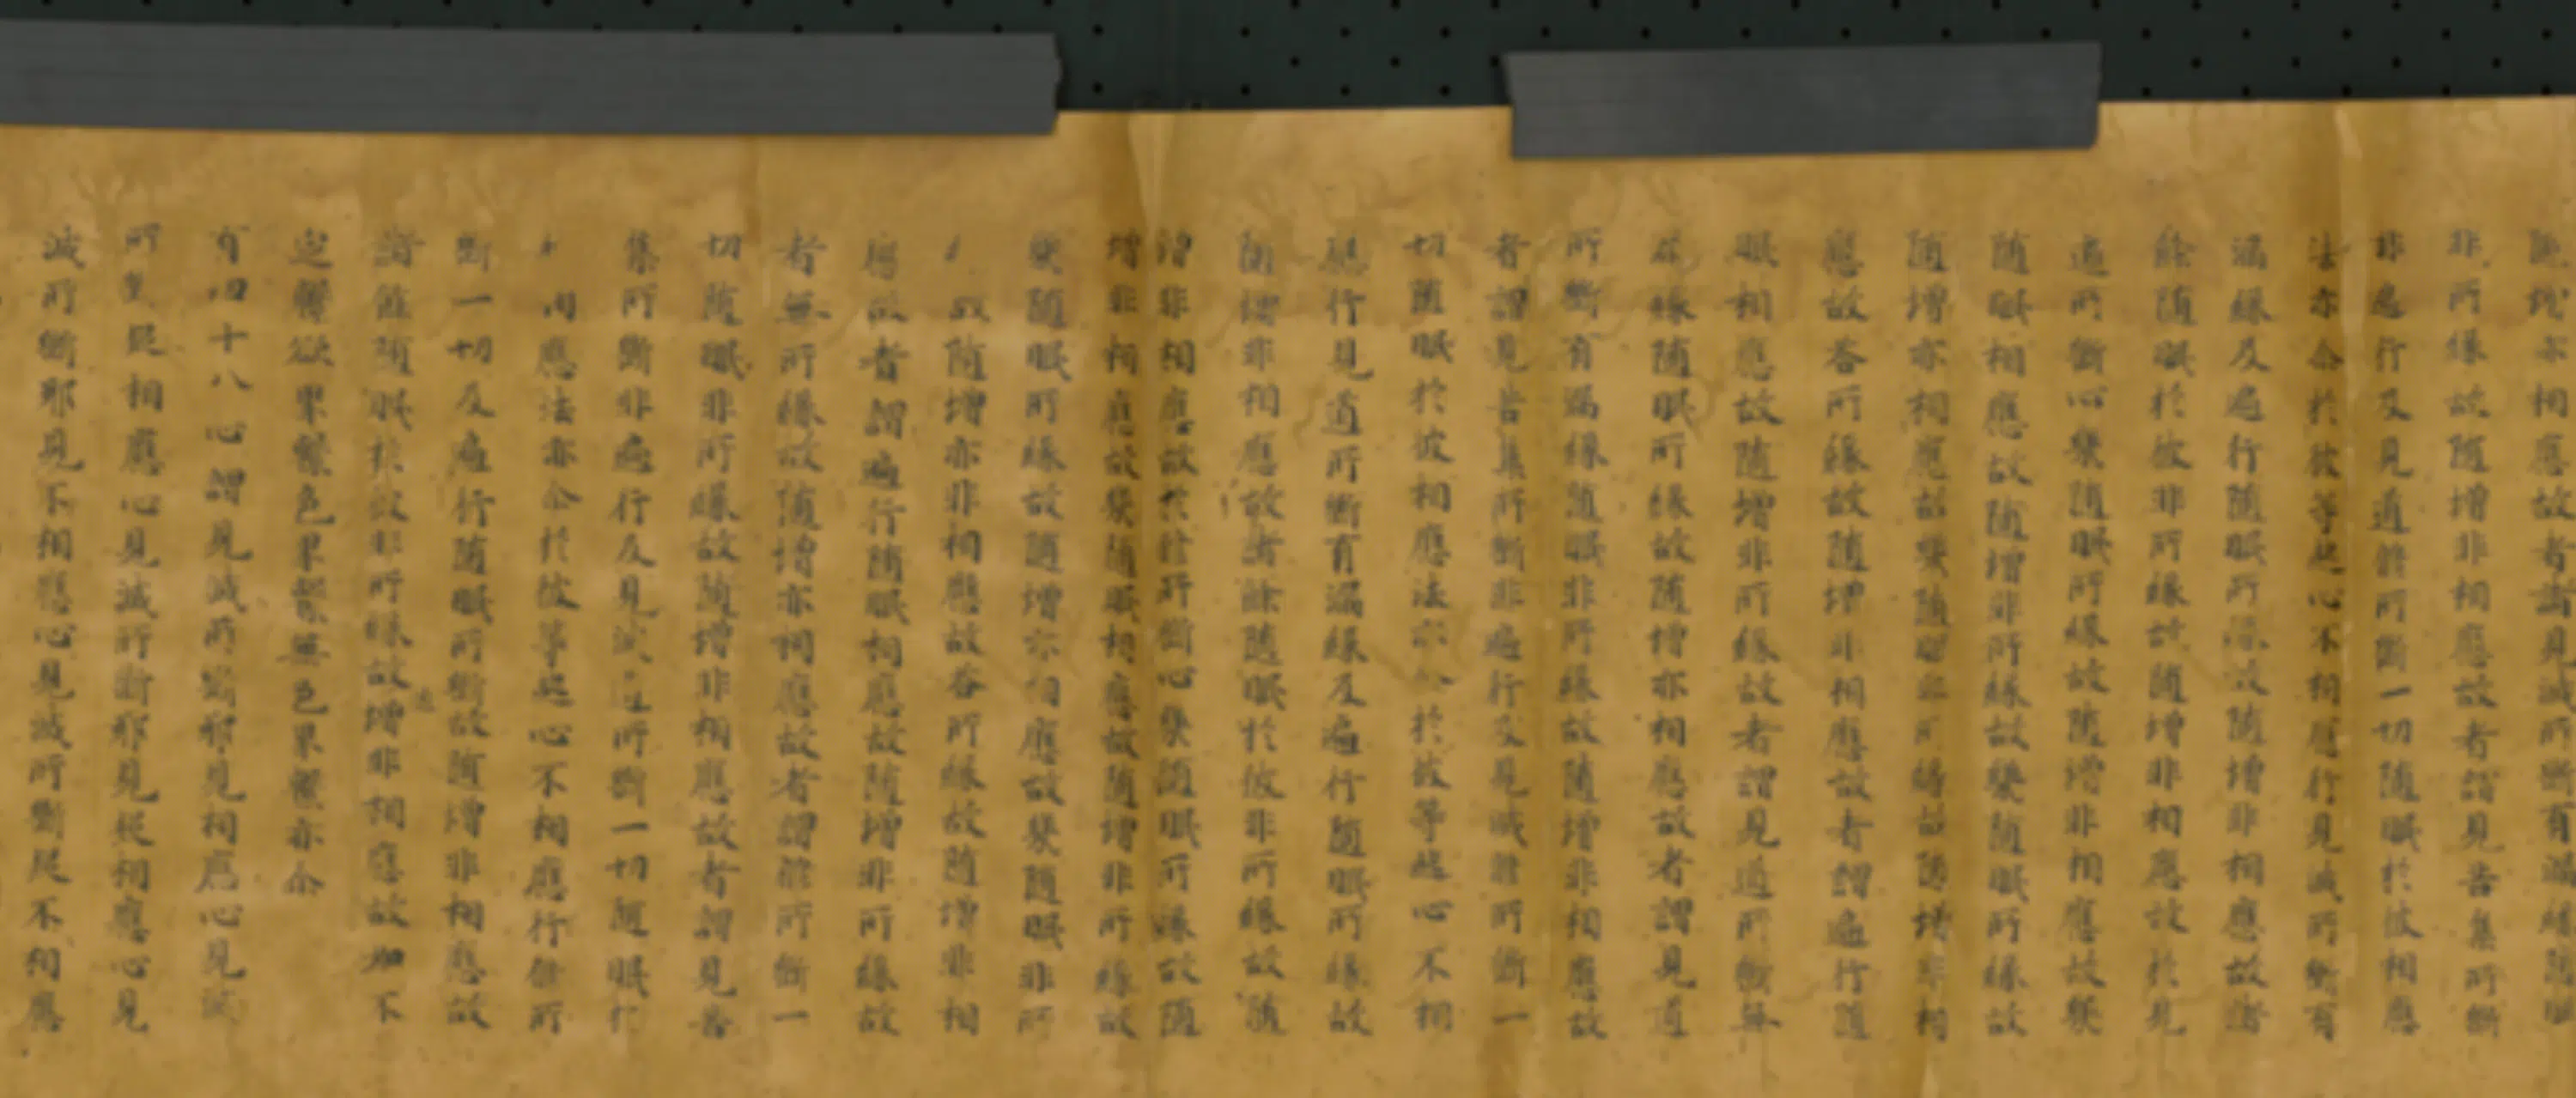 隨增亦相應故者謂見滅所斷有漏緣隨眠
非所緣故隨增非相應故者謂見苦集所斷
非遍行及見道修所斷一切隨眠於彼相應
法亦尒於彼等起心不相應行見滅所斷有
漏緣及遍行隨眠所緣故隨增非相應故諸
餘隨眠於彼非所緣故隨增非相應故於見
道所斷心幾隨眠所緣故隨增非相應故幾
隨眠相應故隨增非所緣故幾隨眠所緣故
隨增亦相應故幾隨眠非所緣故隨增非相
應故答所緣故隨增非相應故者謂遍行隨
眠相應故隨增非所緣故者謂見道所斷無
漏緣隨眠所緣故隨增亦相應故者謂見道
所斷有漏緣隨眠非所緣故隨增非相應故
者謂見苦集所斷非遍行及見滅修所斷一
切隨眠於彼相應法亦尒於彼等起心不相
應行見道所斷有漏緣及遍行隨眠所緣故
隨增非相應故諸餘隨眠於彼非所緣故隨
增非相應故於修所斷心幾隨眠所緣故隨
增非相應故幾隨眠相應故隨增非所緣故
幾隨眠所緣故隨增亦相應故幾隨眠非所
故隨增亦非相應故答所緣故隨增非相
應故者謂遍行隨眠相應故隨增非所緣故
者無所緣故隨增亦相應故者謂修所斷一
切隨眠非所緣故隨增非相應故者謂見苦
集所斷非遍行及見滅道所斷一切隨眠於
相應法亦尒於彼等起心不相應行修所
斷一切及遍行隨眠所斷故隨增非相應故
諸餘隨眠於彼非所緣故增非相應故如不
定繫欲界繫色界繫無色界繫亦尒
有四十八心謂見滅所斷邪見相應心見滅
所斷疑相應心見滅所斷邪見疑相應心見
滅所斷邪見不相應心見滅所斷疑不相應